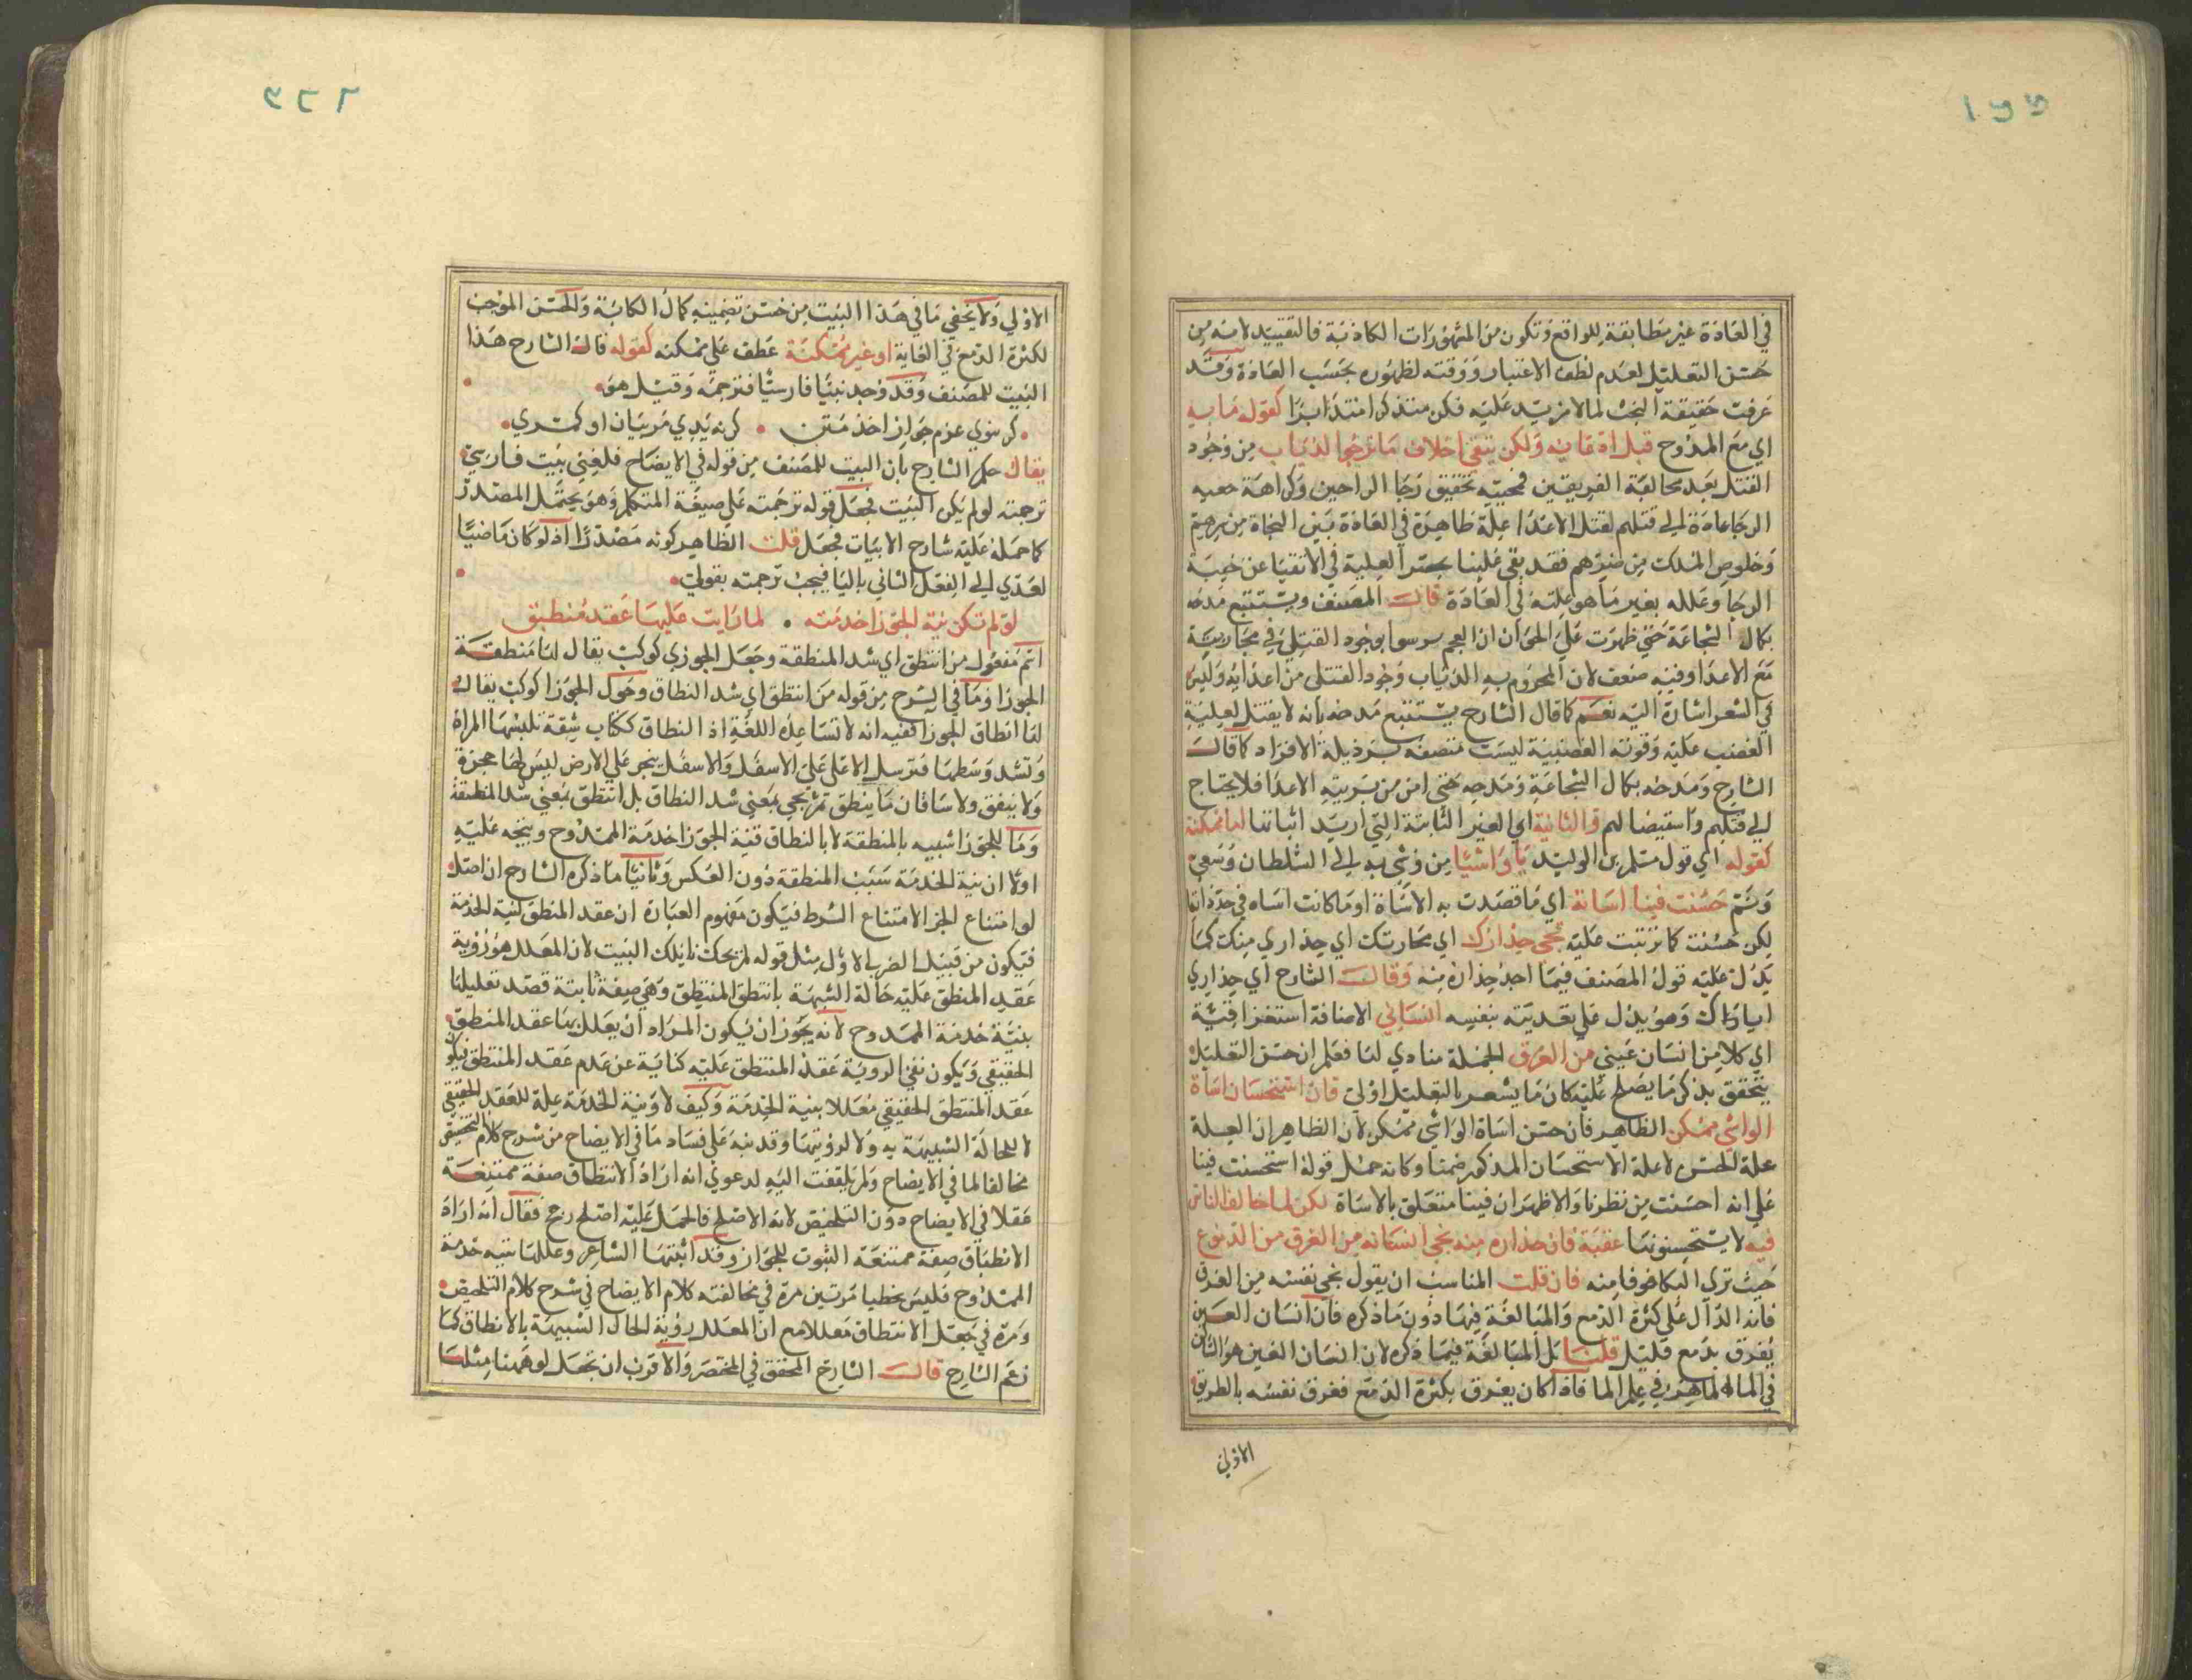 في العادة غير مطابقة للواقع وتكون من المشهورات الكاذبة فالتقييد لانه من
حسن التعليل لعدم لطف الاعتبار ووقته لظهوره بحسب العادة وقد
عرفت حقيقة البحث لما لامزيد عليه فكن متذكرا متدابرا كقوله ما به
اي مع الممدوح قبل اعاديه ولكن يتقي اخلاف ما ترجوا الذياب من وجود
القتل بعد مخالفة الفريقين فمحبته تحقيق رجا الراجين وكراهة
الرجا عادة الي قتلهم لقتل الاعدا علة ظاهرة في العادة بين النجاة من
وخلوص الملك من ضرهم فقد بقي علينا العلية في الاتقيا عن خيبة
الرجا وعلله بغير ما هو علته في العادة قال المصنف ويستتبع مدحه
بكمال الشجاعة حتي ظهرت علي الحيوان ان العجم بوجود القتلي في محاربة
مع الاعدا وفيه ضعف لان المحزوم به الذياب وجود القتلي من اعدايه وليس
في الشعر اشارة اليه نعم كما قال الشارح يستتبع مدحه بانه لا يقتل لغلبة
الغضب عليه وقوته الغضبية ليست متصفة برذيلة الافراد كما قال
الشارح ومدحه بكمال الشجاعة ومدحه حتي امن من بريته الاعدا فلا يحتاج
الي قتلهم واستيصالهم والثانية اي الغير الثابتة التي اريد اثباتها اما ممكنة
كقوله اي قول مسلم بن الوليد يا واشيا من وشي به الي السلطان وسعي
ونم حسنت فينا اساته اي ما قصدت به الاساة او ما كانت اساه في حد ذاتها
لكن حسنت كما ترتبت عليه نجي حذارك اي محارتك اي حذاري منك كما
يدل عليه قول المصنف فيما احد حذاره منه وقال الشارح اي حذاري
اياك وهو يدل علي تعديته بنفسه انساني الاضافة استغراقية
اي كلا من انسان عيني من الغرق الجملة منادي لنا فعلم ان حسن التعليل
يتحقق بذكر ما يصلح عليه كان ما يشعر بالتعليل اولي فان استحسان اساة
الواشي ممكن الظاهر فان حسن اساة الواشي ممكن لان الظاهر ان العلة
علة الحسن لا علة الاستحسان المذكور ضمنا وكانه حمل قوله استحسنت فينا
علي انه احسنت من نظرنا والاظهر ان فينا متعلق بالاساة لكن لما خالف الناس
فيه لا يستحسنونها عقبه فان حذاره منه نجي انسانه من الغرق من الدموع
حيث ترك البكا خوفا منه فان قلت المناسب ان يقول نجي نفسه من الغرق
فانه الدال علي كثرة الدمع والمبالغة فيها دون ما ذكره فان انسان العين
يغرق بدمع قليل قلنا بل المبالغة فيما ذكره لان انسان العين هو الشان
في الماله الماهر في علم الما فاذا كان يغرق بكثرة الدمع فغرق نفسه بالطريق
الاولي
الاولي ولا يخفي ما في هذا البيت من حسن تضمينه كمال الكابة والحسن الموجب
لكثرة الدمع في الغاية او غير ممكنة عطف علي ممكنه كقوله قال الشارح هذا
البيت للمصنف وقد وجد بيتا فارسيا فترجمه وقيل هو
كر نبودي عزم جوازا خدمتش كر نه ديدي مر ميان او كمري
يقال حكم الشارح بان البيت للمصنف من قوله في الايضاح فلغيني بيت فارسي
ترجمته لو لم يكن البيت فجعل قوله ترجمته علي صيغة المتكلم وهو يحتمل المصدر
كما حمله عليه شارح الابيات فجعل قلت الظاهر كونه مصدرا اذ لو كان ماضيا
لعدي الي الفعل الثاني باليا فيجب ترجمته بقولي
لو لم تكن نية الجوزا خدمته لما رايت عليها عقد منطبق
اسم مفعول من انتطق اي شد المنطقة وجعل الجوزي كوكب يقال لها منطقة
الجوزا وما في الشرح من قوله من انتطق اي شد النطاق وحول الجوزا كوكب يقال
لها انطاق الجوزا ففيه انه لا تساعده اللغة اذ النطاق ككتاب شقة تلبسها المراة
وتشد وسطها فترسل الاعلي علي الاسفل والاسفل ينجر علي الارض ليس لها حجزة
ولا نيفق ولا ساقان ما ينطق ثم يجي بمعني شد النطاق بل انتطق بمعني شد المنطقة
وما للجوزا شبيه بالمنطقة لا بالنطاق فنية الجوزا خدمة الممدوح ويتجه عليه
اولا ان نية الخدمة سبب المنطقة دون العكس وثانيا ما ذكره الشارح ان اصل
لو امتناع الجزا لامتناع الشرط فيكون مفهوم العبارة ان عقد المنطق لنية الخدمة
فيكون من قبيل الضرب الاول مثل قوله لم يحك نايلك البيت لان المعلل هو رؤية
عقد المنطق عليه حالة الشبيهة بانتطاق المنتطق وهي صفة ثابتة قصد تعليلها
بنية خدمة الممدوح لانه يجوز ان يكون المراد ان يعلل بها عقد المنطق
الحقيقي ويكون نفي الروية عقد المنتطق عليه كناية عن عدم عقد المنتطق فيكون
عقد المنتطق الحقيقي معللا بنية الخدمة وكيف لا ونية الخدمة علة للعقد الحقيقي
لا للحالة الشبيهة به ولا لرؤيتها وقد نبه علي فساد ما في الايضاح من شرح كلام التحقيق
مخالفا لما في الايضاح ولم يلتفت اليه لدعوي انه اراد الانتطاق صفة ممتنعة
عقلا في الايضاح دون التلخيص لانه الاصلح فالحمل عليه اصلح رجح فقال انه اراد
الانطباق صفة ممتنعة الثبوت للجوازا وقد اثبتها الشاعر وعللها بنية خدمة
الممدوح فليس بخطيا مرتين مرة في مخالفته كلام الايضاح في شرح كلام التلخيص
ومرة في جعل الانتطاق معللا مع ان المعلل رؤية الحال الشبيهة بالانطاق كما
زعم الشارح قال الشارح المحقق في المختصر والاقرب ان تجعل لو ههنا مثلها